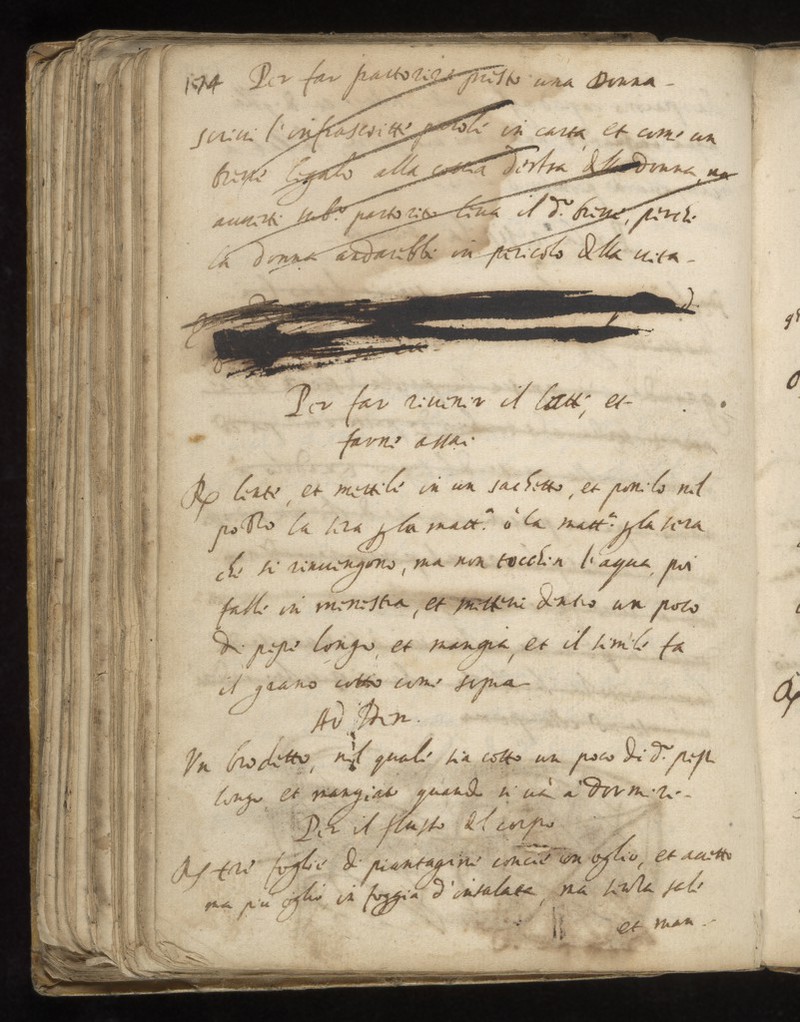 174 Per far partorire presto una Donna -
scrivi l'infrascritte parole in carta, et come un
breve legalo alla coscia destra della Donna, ma
averti subo partorito leva il do breve, perche
la donna andarebbe in pericolo della vita -
Per far rivenir il latte, et
farne assai
Rx lente, et mettile in un sachetto, et ponilo nel
pozzo la sera p la matta ò la matta p la sera
che si rinvengono, ma non tocchin l'aqua, poi
falle in menestra, et mettevi dentro un poco
di pepe longo, et mangia, et il simile fa
il grano cotto come sopra
Ad Idem.
Un brodetto, nel quale sia cotto un poco di do pepe
longo et mangiato quando si và à dormire -
Per il flusso del corpo
Rx tre foglie di piantagine concie con oglio, et aceto
ma più oglio in foggia d'insalata, ma senza sale
et man -